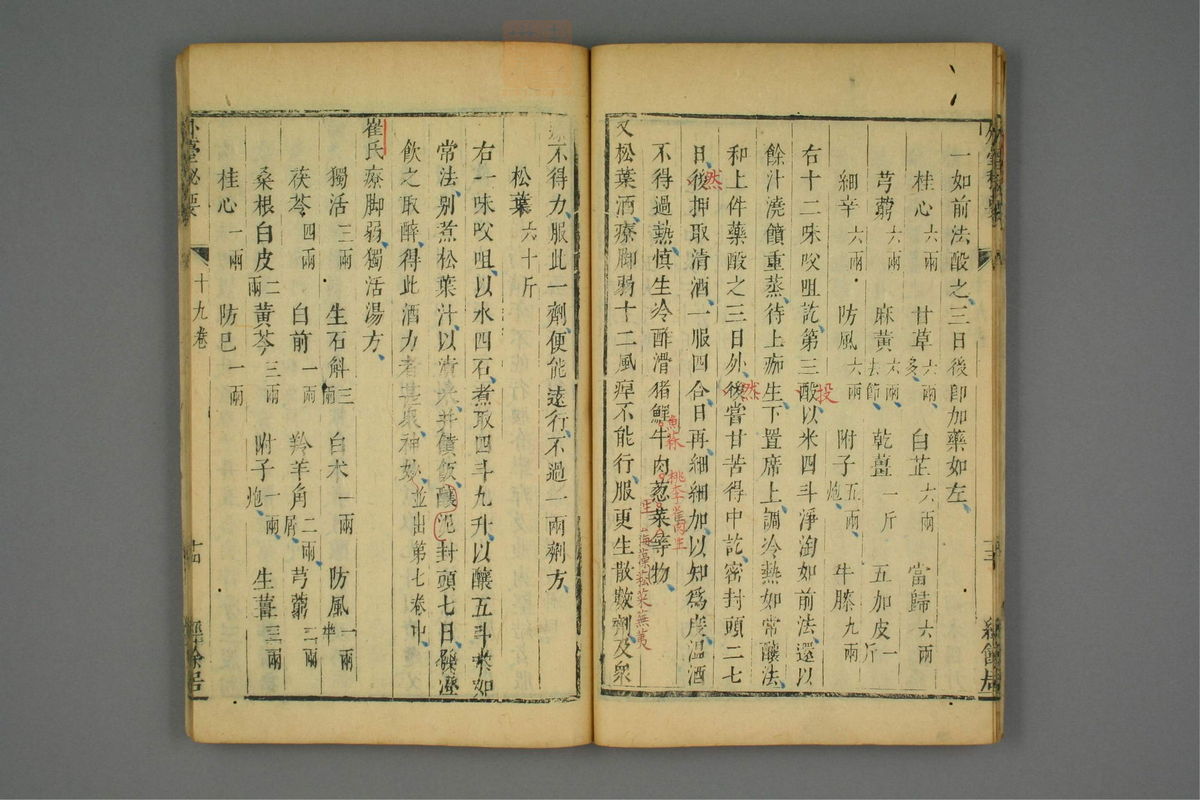 一如前法酘之三日後即加藥如左
桂心六兩 甘草六兩炙 白芷六兩 當歸六兩
芎藭六兩 麻黃六兩去節 乾薑一斤 五加皮一斤
細辛六兩 防風六兩 附子五兩炮 牛膝九兩
右十二味㕮咀訖第三酘以米四斗淨淘如前法還以
投
餘汁澆饙重蒸待上痂生下置席上調冷熱如常釀法
和上件藥酘之三日外後嘗甘苦得中訖密封頭二七
然
日後押取清酒一服四合日再細細加以知為度溫酒
然
不得過熱慎生冷酢滑猪鮮牛肉葱菜等物
魚蒜
桃李
生
海藻菘菜蕪荑
又松葉酒療脚弱十二風痺不能行服更生散數劑及衆
不得力服此一劑便能遠行不過一兩劑方
松葉六十斤
右一味㕮咀以水四石煮取四斗九升以釀五斗米如
常法別煮松葉汁以漬米并饙飯釀泥封頭七日發澄
飲之取醉得此酒力者甚衆神妙並出第七卷中
崔氏療脚弱獨活湯方
獨活三兩 生石斛三兩 白木一兩 防風一兩
茯苓四兩 白前一兩 羚羊角二兩屑 芎藭二兩
桑根白皮二兩 黃芩三兩 附子一兩炮 生薑三兩
桂心一兩 防巳一兩
外臺秘要 十九卷 十四 經餘居